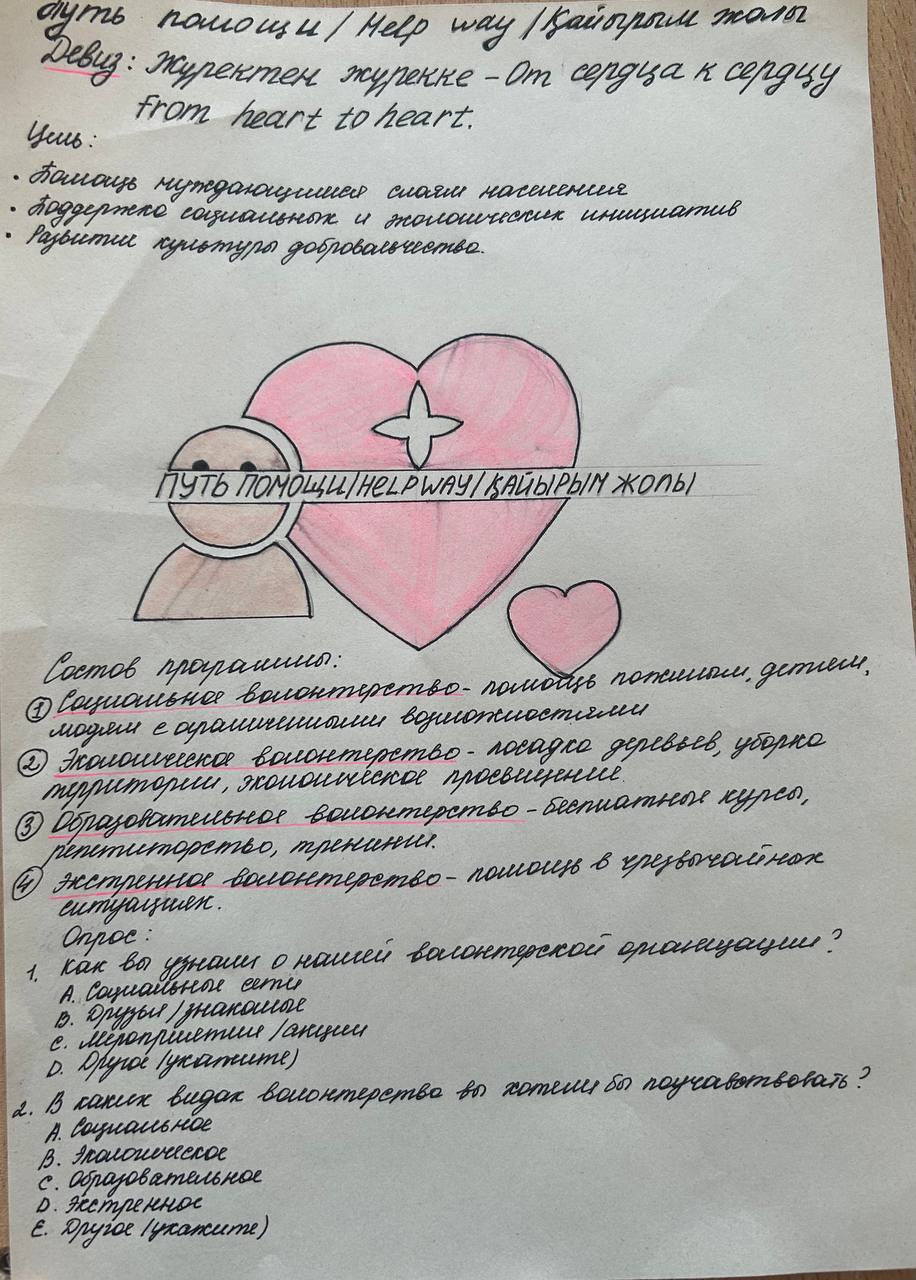 Путь помощи / Help way / Қайырым жолы
Девиз: Журектен журекке - От сердца к сердцу
From heart to heart.
Цель:
• Помощь нуждающимися слоям населения
• Поддержка социальных и экологических инициатив
• Развитие культуры добровольчества.
ПУТЬ ПОМОЩИ/HELP WAY/ҚАЙЫРЫМ ЖОЛЫ
Состов программы:
① Социальное волонтерство - помощь пожилым, детям,
людям с ограниченными возможностями
② Экологическое волонтерство - посадка деревьев, уборка
территории, экологическое просвещение.
③ Образовательное волонтерство - бесплатные курсы,
репетиторство, тренинги.
④ Экстренное волонтерство - помощь в чрезвычайных
ситуациях.
Опрос:
1. Как вы узнали о нашей волонтерской организации?
A. Социальные сети
B. Друзья / знакомые
C. Мероприятия / акции
D. Другое (укажите)
2. В каких видах волонтерства вы хотели бы поучавствовать?
A. Социальное
B. Экологическое
C. Образовательное
D. Экстренное
E. Другое (укажите)